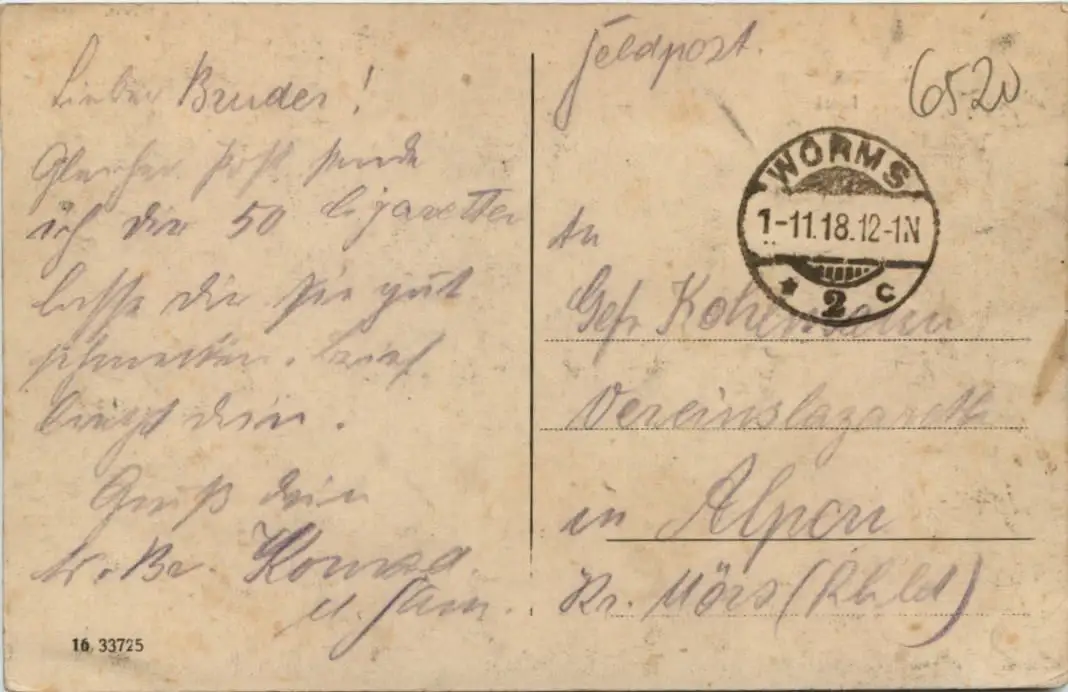 Lieber Bruder!
Gleicher Post sende
ich dir 50 Cigaretten
lasse dir sie gut
schmecken. Brief
folgt
Gruß dein
tr. Br. Konrad
u. Fam.
16 33725
Feldpost.
6520
WORMS
1-11.18.12-1N
* 2 c
An
Gefr Kohlmann
Vereinslazareth
in Alpen
Kr. Mörs (Rhld)